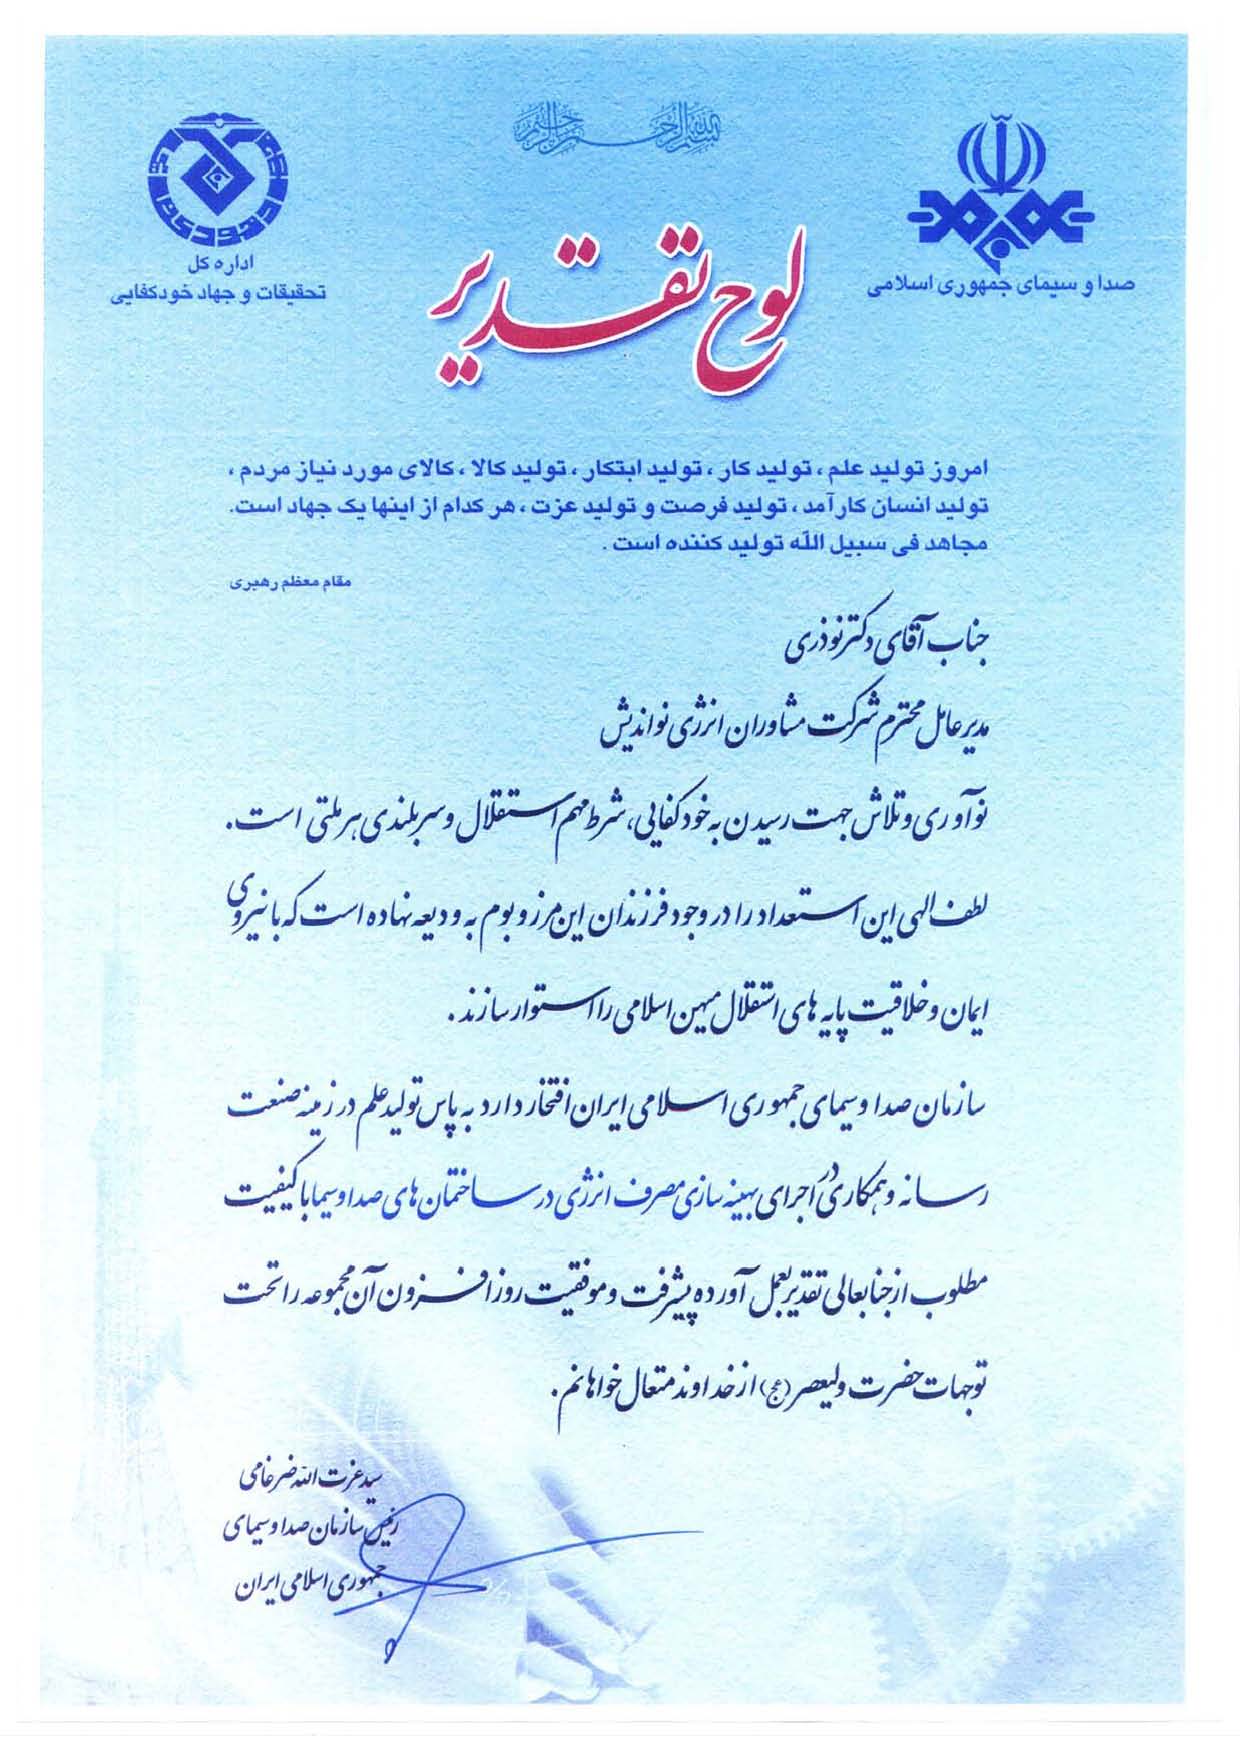 بسم الله الرحمن الرحیم
صدا و سیمای جمهوری اسلامی
اداره کل
تحقیقات و جهاد خودکفایی
لوح تقدیر
امروز تولید علم ، تولید کار ، تولید ابتکار ، تولید کالا ، کالای مورد نیاز مردم ،
تولید انسان کارآمد ، تولید فرصت و تولید عزت ، هر کدام از اینها یک جهاد است.
مجاهد فی سبیل الله تولید کننده است .
مقام معظم رهبری
جناب آقای دکتر نوذری
مدیرعامل محترم شرکت مشاوران انرژی نواندیش
نوآوری و تلاش جهت رسیدن به خودکفایی، شرط مهم استقلال و سربلندی هر ملتی است.
لطف الهی این استعداد را در وجود فرزندان این مرز و بوم به ودیعه نهاده است که با نیروی
ایمان و خلاقیت پایه های استقلال میهن اسلامی را استوار سازند.
سازمان صدا و سیمای جمهوری اسلامی ایران افتخار دارد به پاس تولید علم در زمینه صنعت
رسانه و همکاری در اجرای بهینه سازی مصرف انرژی در ساختمان های صدا و سیما با کیفیت
مطلوب از جنابعالی تقدیر بعمل آورده پیشرفت و موفقیت روز افزون آن مجموعه را تحت
توجهات حضرت ولیعصر (عج) از خداوند متعال خواهانم.
سید عزت الله ضرغامی
رئیس سازمان صدا و سیمای
جمهوری اسلامی ایران